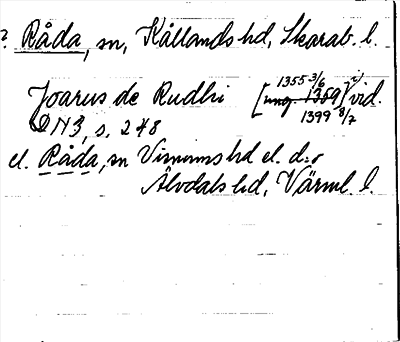 ? Råda, sn, Kållands hd, Skarab. l.
Joarus de Rudhi [ung. 1359] vid.
1355 3/6
1399 8/7
DN 3, s. 248
el. Råda, sn Visnums hd el. d:o
Älvdals hd, Värml. l.